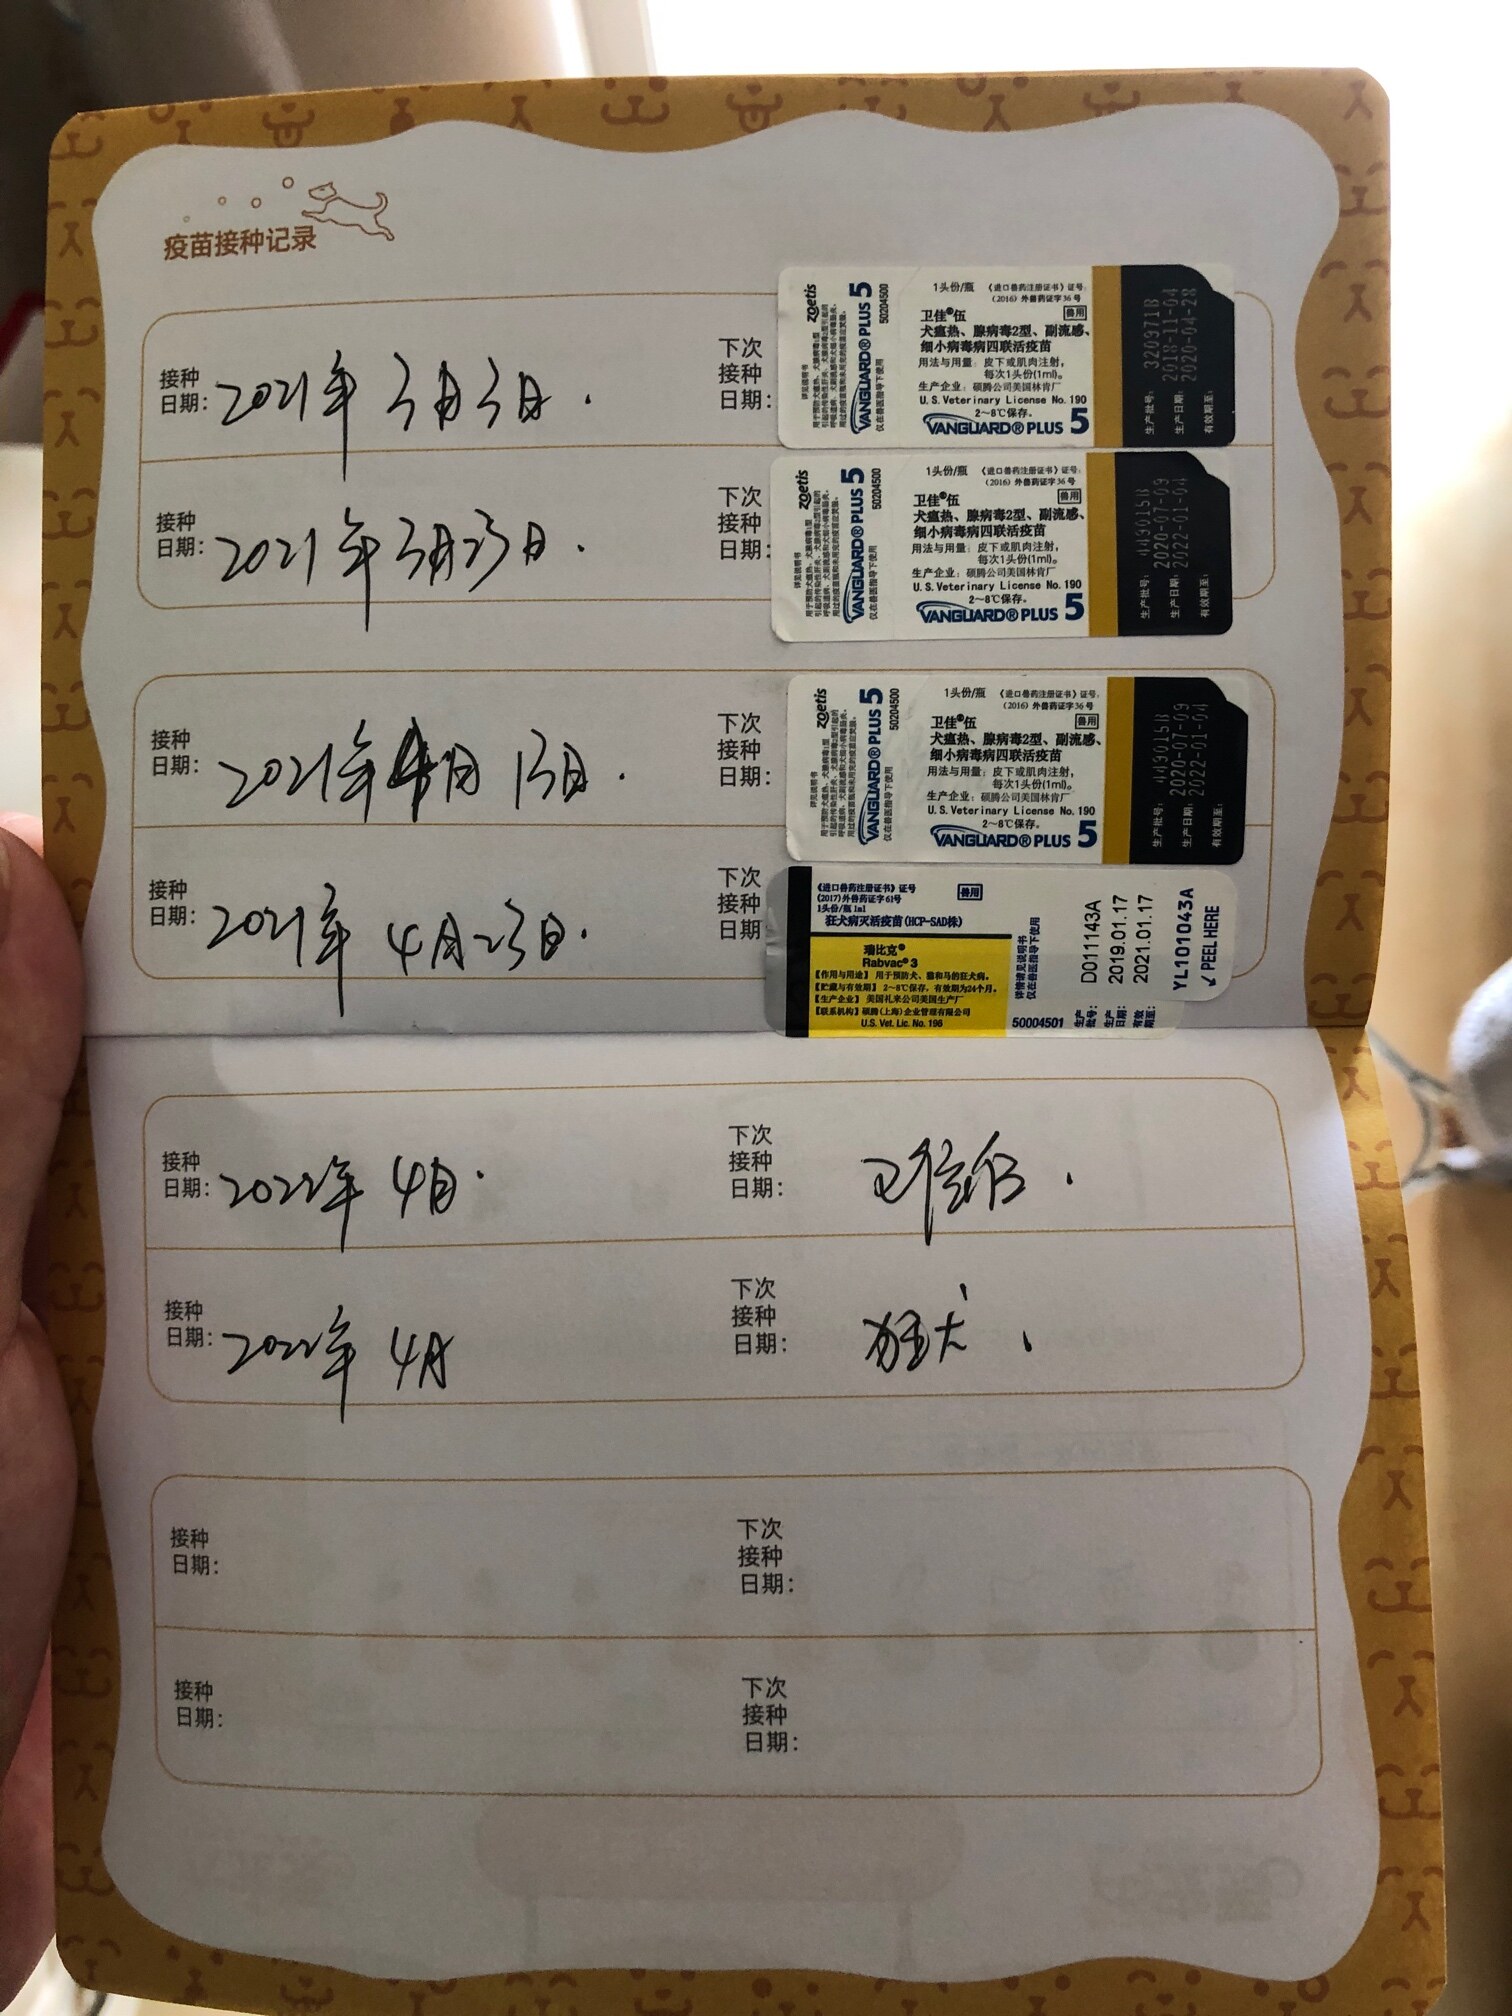 疫苗接种记录
接种日期: 2021年3月3日.
下次接种日期:
zoetis
VANGUARD® PLUS 5
仅在兽医指导下使用
50204500
1头份/瓶 《进口兽药注册证书》证号:
(2016)外兽药证字36号
卫佳®伍 兽用
犬瘟热、腺病毒2型、副流感、
细小病毒病四联活疫苗
用法与用量: 皮下或肌肉注射,
每次1头份(1ml)。
生产企业: 硕腾公司美国林肯厂
U.S. Veterinary License No. 190
2~8℃保存。
VANGUARD® PLUS 5
生产批号: 320971B
生产日期: 2018-11-04
有效期至: 2020-04-28
接种日期: 2021年3月23日.
下次接种日期:
zoetis
VANGUARD® PLUS 5
仅在兽医指导下使用
50204500
1头份/瓶 《进口兽药注册证书》证号:
(2016)外兽药证字36号
卫佳®伍 兽用
犬瘟热、腺病毒2型、副流感、
细小病毒病四联活疫苗
用法与用量: 皮下或肌肉注射,
每次1头份(1ml)。
生产企业: 硕腾公司美国林肯厂
U.S. Veterinary License No. 190
2~8℃保存。
VANGUARD® PLUS 5
生产批号: 449015B
生产日期: 2020-07-09
有效期至: 2022-01-04
接种日期: 2021年4月13日.
下次接种日期:
zoetis
VANGUARD® PLUS 5
仅在兽医指导下使用
50204500
1头份/瓶 《进口兽药注册证书》证号:
(2016)外兽药证字36号
卫佳®伍 兽用
犬瘟热、腺病毒2型、副流感、
细小病毒病四联活疫苗
用法与用量: 皮下或肌肉注射,
每次1头份(1ml)。
生产企业: 硕腾公司美国林肯厂
U.S. Veterinary License No. 190
2~8℃保存。
VANGUARD® PLUS 5
生产批号: 449015B
生产日期: 2020-07-09
有效期至: 2022-01-04
接种日期: 2021年4月23日.
下次接种日期
《进口兽药注册证书》证号 兽用
(2017)外兽药证字61号
1头份/瓶 1ml
狂犬病灭活疫苗(HCP-SAD株)
瑞比克®
Rabvac® 3
【作用与用途】 用于预防犬、猫和马的狂犬病。
【贮藏与有效期】 2~8℃保存, 有效期为24个月。
【生产企业】 美国礼来公司美国生产厂
【联系机构】 硕腾(上海)企业管理有限公司
U.S. Vet. Lic. No. 196
详情请见说明书
仅在兽医指导下使用
50004501
生产批号: D011143A
生产日期: 2019.01.17
有效期至: 2021.01.17
YL101043A
PEEL HERE
接种日期: 2022年4月.
下次接种日期: 卫佳伍.
接种日期: 2022年4月
下次接种日期: 狂犬.
接种日期:
下次接种日期:
接种日期:
下次接种日期: